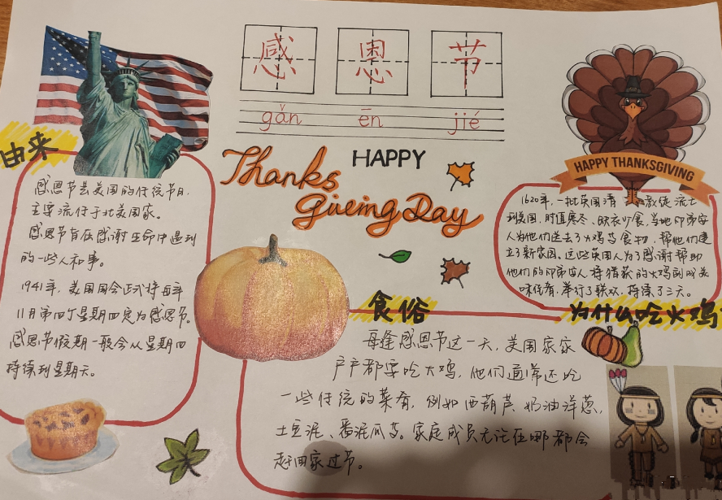 感恩节
gǎn ēn jié
HAPPY
Thanks
Giveing Day
HAPPY THANKSGIVING
由来
感恩节是美国的传统节日,
主要流行于北美国家。
感恩节旨在感谢生命中遇到
的一些人和事。
1941年,美国国会正式将每年
11月第四个星期四定为感恩节。
感恩节假期一般会从星期四
持续到星期天。
1620年,一批英国清教徒流亡
到美国,时值寒冬,缺衣少食,当地印第安
人为他们送去了火鸡等食物,帮他们建
立了新家园,这些英国人为了感谢帮助
他们的印第安人将猎获的火鸡制成美
味佳肴,举行了联欢,持续了三天。
为什么吃火鸡
食俗
每逢感恩节这一天,美国家家
户户都要吃火鸡,他们通常还吃
一些传统的菜肴,例如西葫芦、奶油洋葱、
土豆泥、番泥瓜等。家庭成员无论在哪都会
赶回家过节。